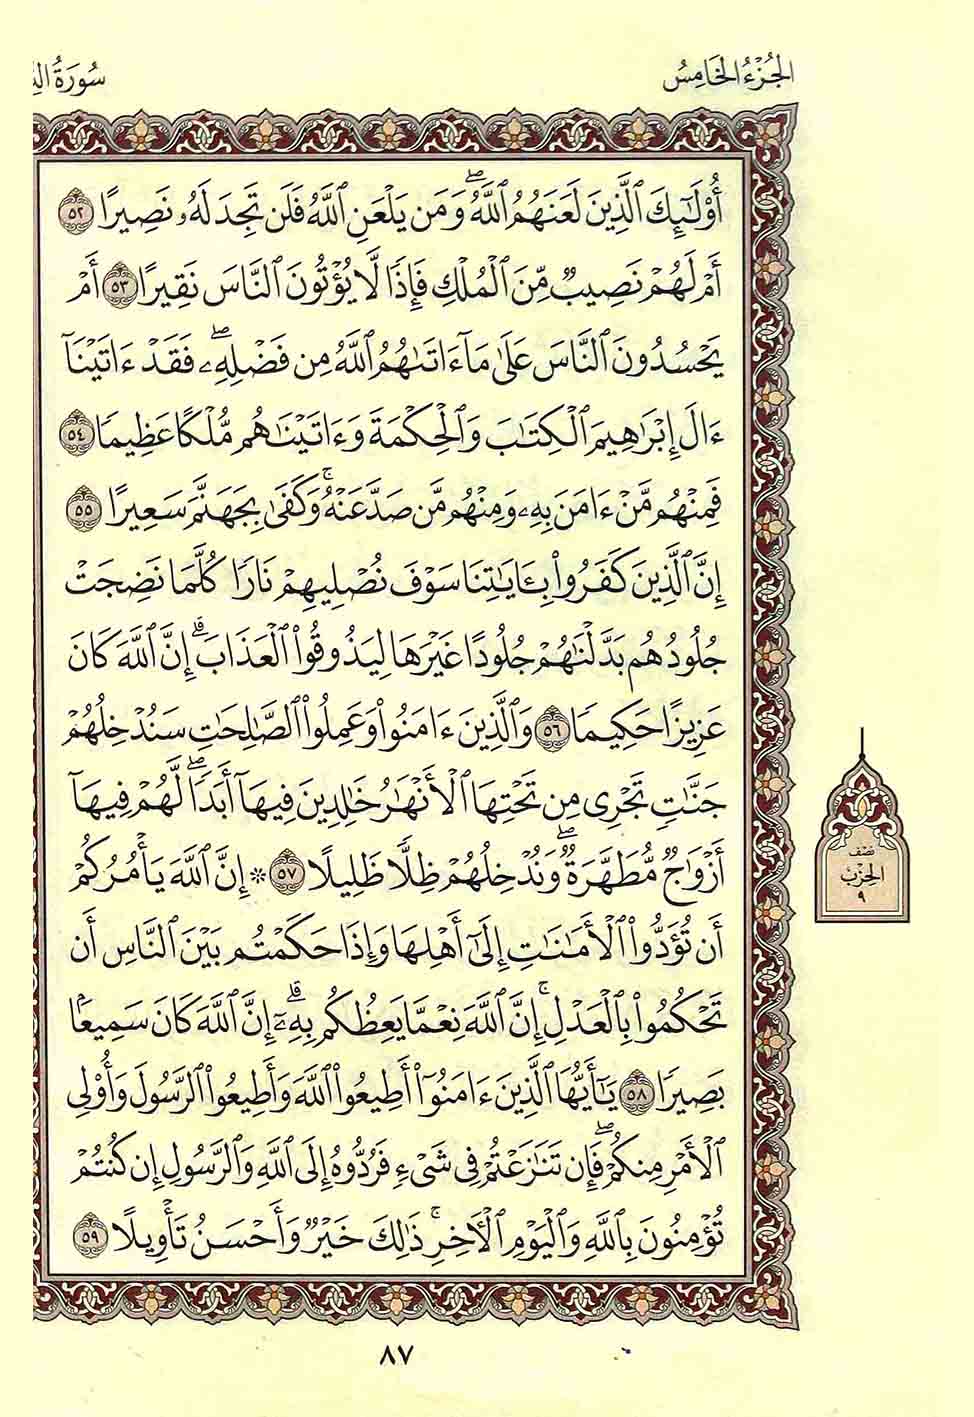 الجُزْءُ الخَامِسُ
سُورَةُ
أُوْلَٰٓئِكَ ٱلَّذِينَ لَعَنَهُمُ ٱللَّهُۖ وَمَن يَلْعَنِ ٱللَّهُ فَلَن تَجِدَ لَهُۥ نَصِيرًا ٥٢
أَمْ لَهُمْ نَصِيبٌ مِّنَ ٱلْمُلْكِ فَإِذًا لَّا يُؤْتُونَ ٱلنَّاسَ نَقِيرًا ٥٣ أَمْ
يَحْسُدُونَ ٱلنَّاسَ عَلَىٰ مَآ ءَاتَىٰهُمُ ٱللَّهُ مِن فَضْلِهِۦۖ فَقَدْ ءَاتَيْنَآ
ءَالَ إِبْرَٰهِيمَ ٱلْكِتَٰبَ وَٱلْحِكْمَةَ وَءَاتَيْنَٰهُم مُّلْكًا عَظِيمًا ٥٤
فَمِنْهُم مَّنْ ءَامَنَ بِهِۦ وَمِنْهُم مَّن صَدَّ عَنْهُۚ وَكَفَىٰ بِجَهَنَّمَ سَعِيرًا ٥٥
إِنَّ ٱلَّذِينَ كَفَرُوا۟ بِـَٔايَٰتِنَا سَوْفَ نُصْلِيهِمْ نَارًا كُلَّمَا نَضِجَتْ
جُلُودُهُم بَدَّلْنَٰهُمْ جُلُودًا غَيْرَهَا لِيَذُوقُوا۟ ٱلْعَذَابَۗ إِنَّ ٱللَّهَ كَانَ
عَزِيزًا حَكِيمًا ٥٦ وَٱلَّذِينَ ءَامَنُوا۟ وَعَمِلُوا۟ ٱلصَّٰلِحَٰتِ سَنُدْخِلُهُمْ
جَنَّٰتٍ تَجْرِى مِن تَحْتِهَا ٱلْأَنْهَٰرُ خَٰلِدِينَ فِيهَآ أَبَدًاۖ لَّهُمْ فِيهَآ
أَزْوَٰجٌ مُّطَهَّرَةٌۖ وَنُدْخِلُهُمْ ظِلًّا ظَلِيلًا ٥٧ ۞ إِنَّ ٱللَّهَ يَأْمُرُكُمْ
أَن تُؤَدُّوا۟ ٱلْأَمَٰنَٰتِ إِلَىٰٓ أَهْلِهَا وَإِذَا حَكَمْتُم بَيْنَ ٱلنَّاسِ أَن
تَحْكُمُوا۟ بِٱلْعَدْلِۚ إِنَّ ٱللَّهَ نِعِمَّا يَعِظُكُم بِهِۦٓۗ إِنَّ ٱللَّهَ كَانَ سَمِيعًۢا
بَصِيرًا ٥٨ يَٰٓأَيُّهَا ٱلَّذِينَ ءَامَنُوٓا۟ أَطِيعُوا۟ ٱللَّهَ وَأَطِيعُوا۟ ٱلرَّسُولَ وَأُو۟لِى
ٱلْأَمْرِ مِنكُمْۖ فَإِن تَنَٰزَعْتُمْ فِى شَىْءٍ فَرُدُّوهُ إِلَى ٱللَّهِ وَٱلرَّسُولِ إِن كُنتُمْ
تُؤْمِنُونَ بِٱللَّهِ وَٱلْيَوْمِ ٱلْـَٔاخِرِۚ ذَٰلِكَ خَيْرٌ وَأَحْسَنُ تَأْوِيلًا ٥٩
نصف
الحزب
٩
٨٧